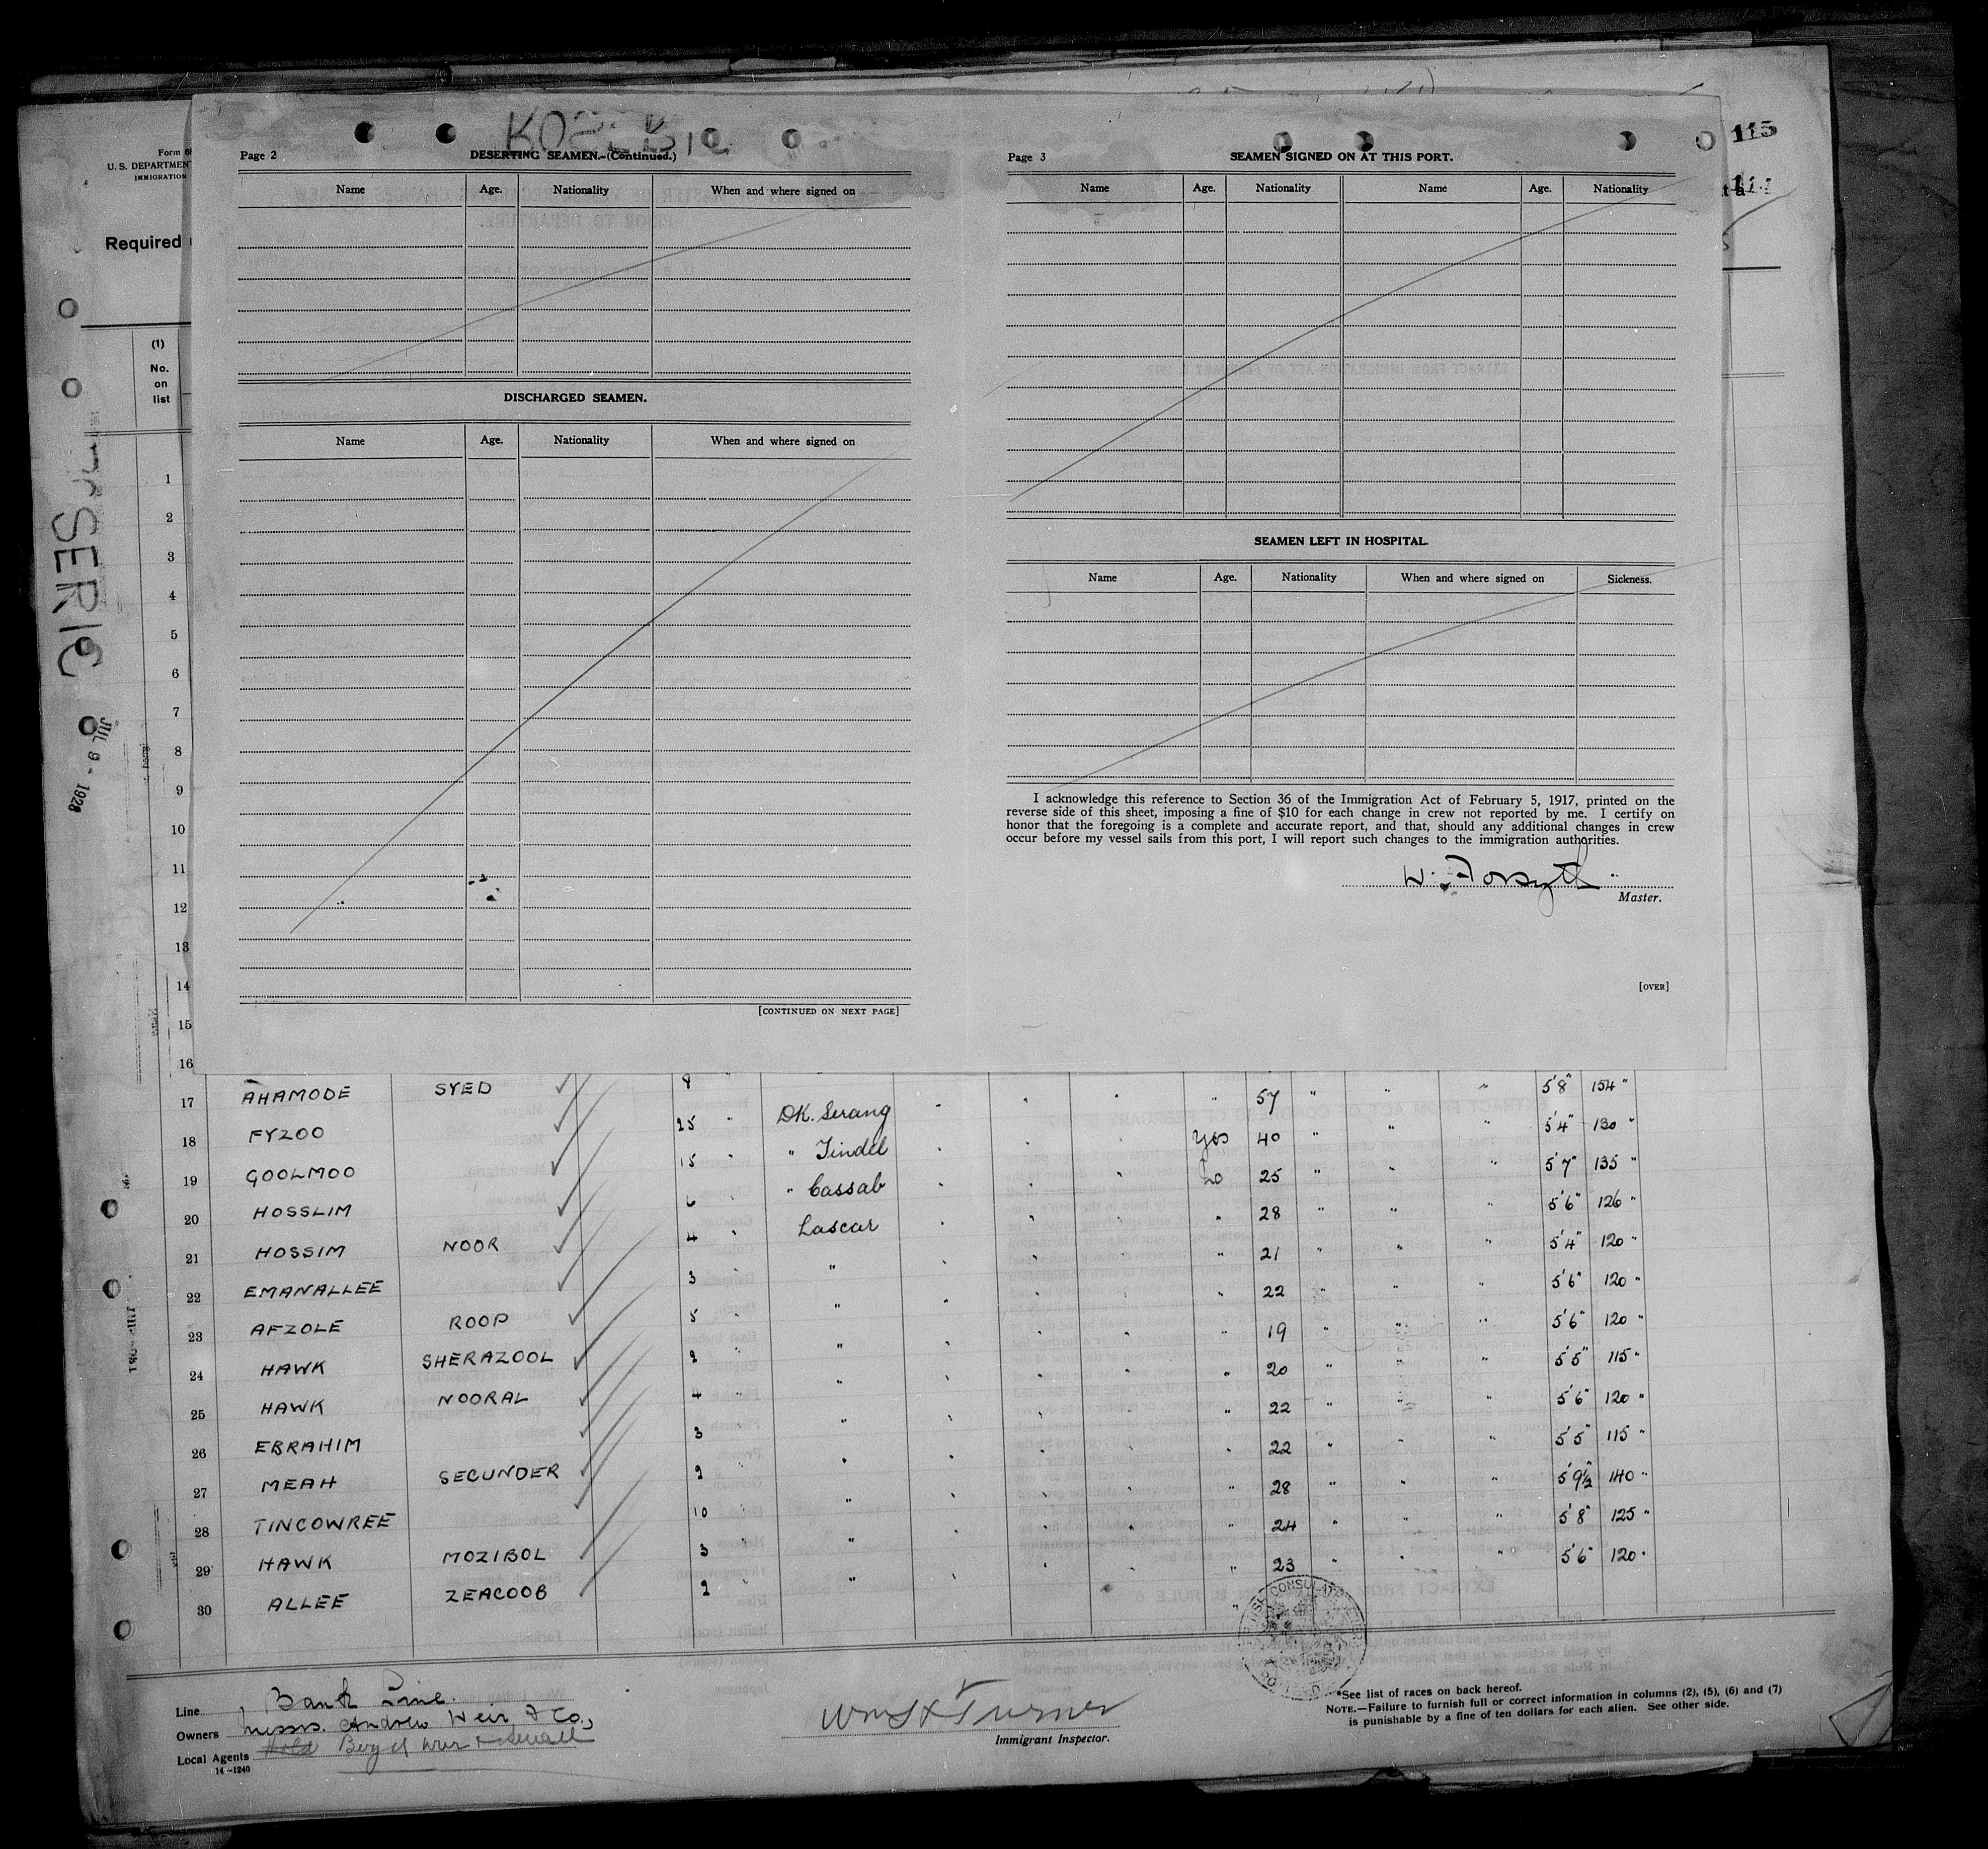 115
KOSERIC
Page 2
DESERTING SEAMEN.-(Continued.)
Name Age. Nationality When and where signed on
DISCHARGED SEAMEN.
Name Age. Nationality When and where signed on
[CONTINUED ON NEXT PAGE]
Page 3
SEAMEN SIGNED ON AT THIS PORT.
Name Age. Nationality Name Age. Nationality
SEAMEN LEFT IN HOSPITAL.
Name Age. Nationality When and where signed on Sickness.
I acknowledge this reference to Section 36 of the Immigration Act of February 5, 1917, printed on the
reverse side of this sheet, imposing a fine of $10 for each change in crew not reported by me. I certify on
honor that the foregoing is a complete and accurate report, and that, should any additional changes in crew
occur before my vessel sails from this port, I will report such changes to the immigration authorities.
W. Forsyth
Master.
[OVER]
Form
U. S. DEPARTMENT
IMMIGRATION
Required
(1)
No.
on
list
SERIC
JUL 9 - 1928
1
2
3
4
5
6
7
8
9
10
11
12
13
14
15
16
17 AHAMODE SYED 8 " 57 " " " 5'8" 154 "
18 FYZOO 25 " DK. Serang Yes 40 " " " 5'4" 130 "
19 GOOLMOO 15 " " Tindel No 25 " " " 5'7" 135 "
20 HOSSLIM 6 " " Cassab " 28 " " " 5'6" 126 "
21 HOSSIM NOOR 4 " Lascar " 21 " " " 5'4" 120 "
22 EMANALLEE 3 " " " 22 " " " 5'6" 120 "
23 AFZOLE ROOP 5 " " " 19 " " " 5'6" 120 "
24 HAWK SHERAZOOL 2 " " " 20 " " " 5'5" 115 "
25 HAWK NOORAL 4 " " " 22 " " " 5'6" 120 "
26 EBRAHIM 3 " " 22 " " " 5'5" 115 "
27 MEAH SECUNDER 2 " " " 28 " " " 5'9½" 140 "
28 TINCOWREE 10 " " " 24 " " " 5'8" 125 "
29 HAWK MOZIBOL 3 " " " 23 " " " 5'6" 120 "
30 ALLEE ZEACOOB 2 " "
Line Bank Line.
Owners Messrs. Andrew Weir & Co.,
Local Agents
14-1240
Wm H Turner
Immigrant Inspector.
*See list of races on back hereof.
NOTE.—Failure to furnish full or correct information in columns (2), (5), (6) and (7)
is punishable by a fine of ten dollars for each alien. See other side.